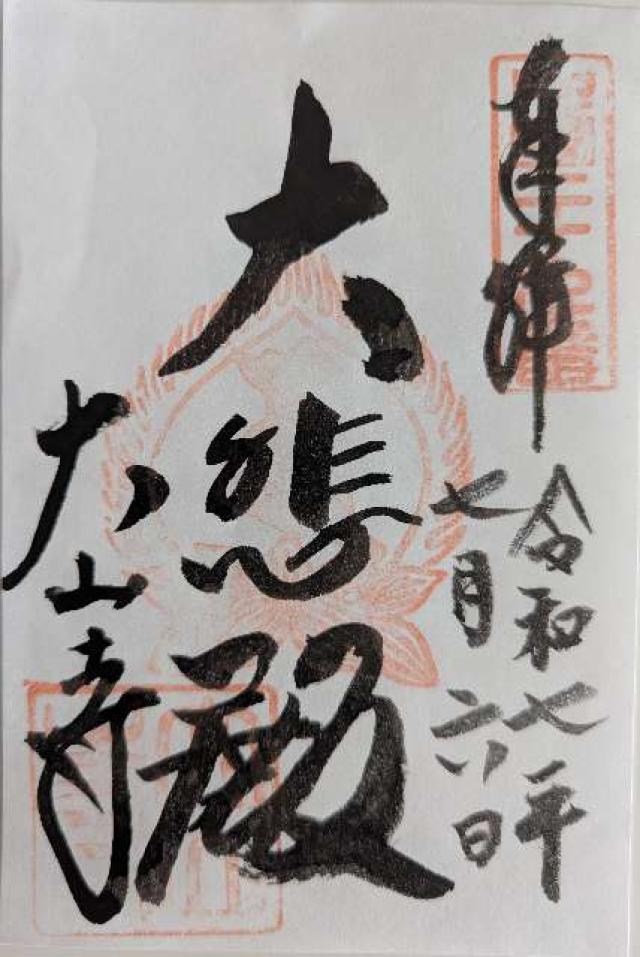 奉拝
令和七年
七月六日
大悲殿
大山寺